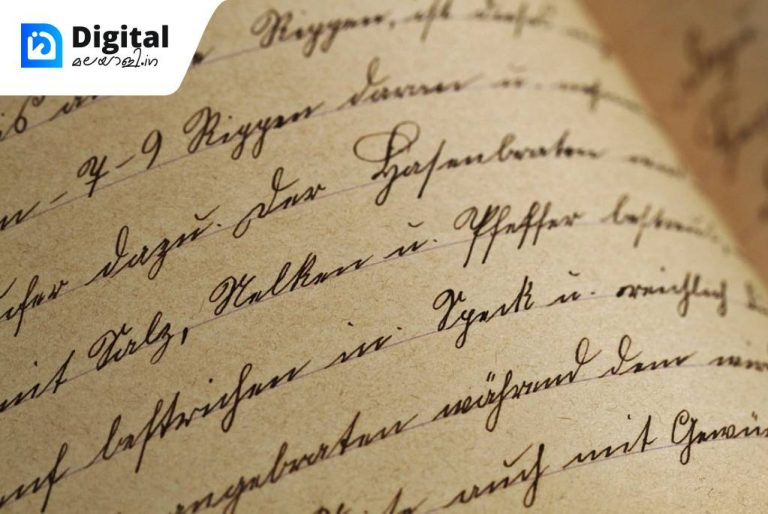 Digital
മലയാളി.in
Rippen, ist diese
- 7 - 9 Rippen daran u.
dazu. Der Hasenbraten
mit Salz, Nelken u. Pfeffer
bestrichen in Speck u. reichlich
angebraten während dem
auch mit Gewü